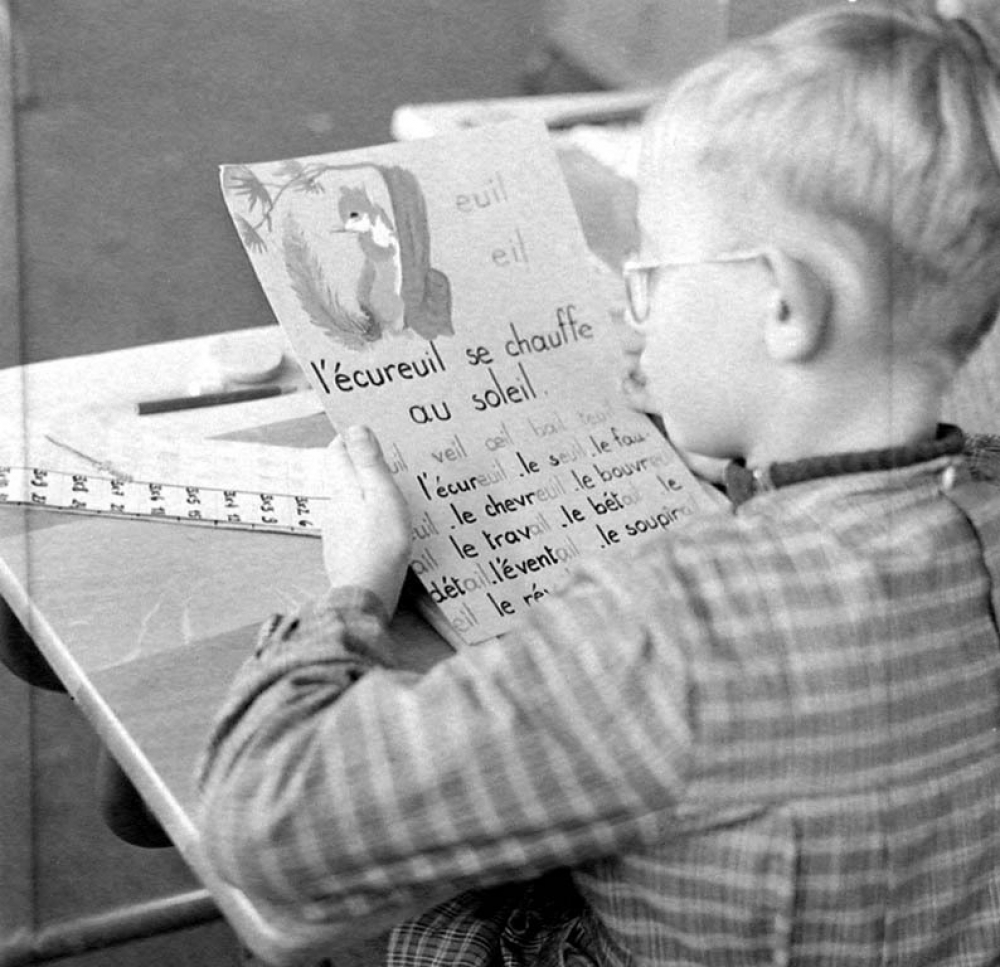 euil
eil
l'écureuil se chauffe
au soleil.
veil œil bail
l'écureuil .le seuil .le fau
euil .le chevreuil .le bouvreuil
ail le travail .le bétail .le
détail .l'éventail .le soupirail
eil le rév